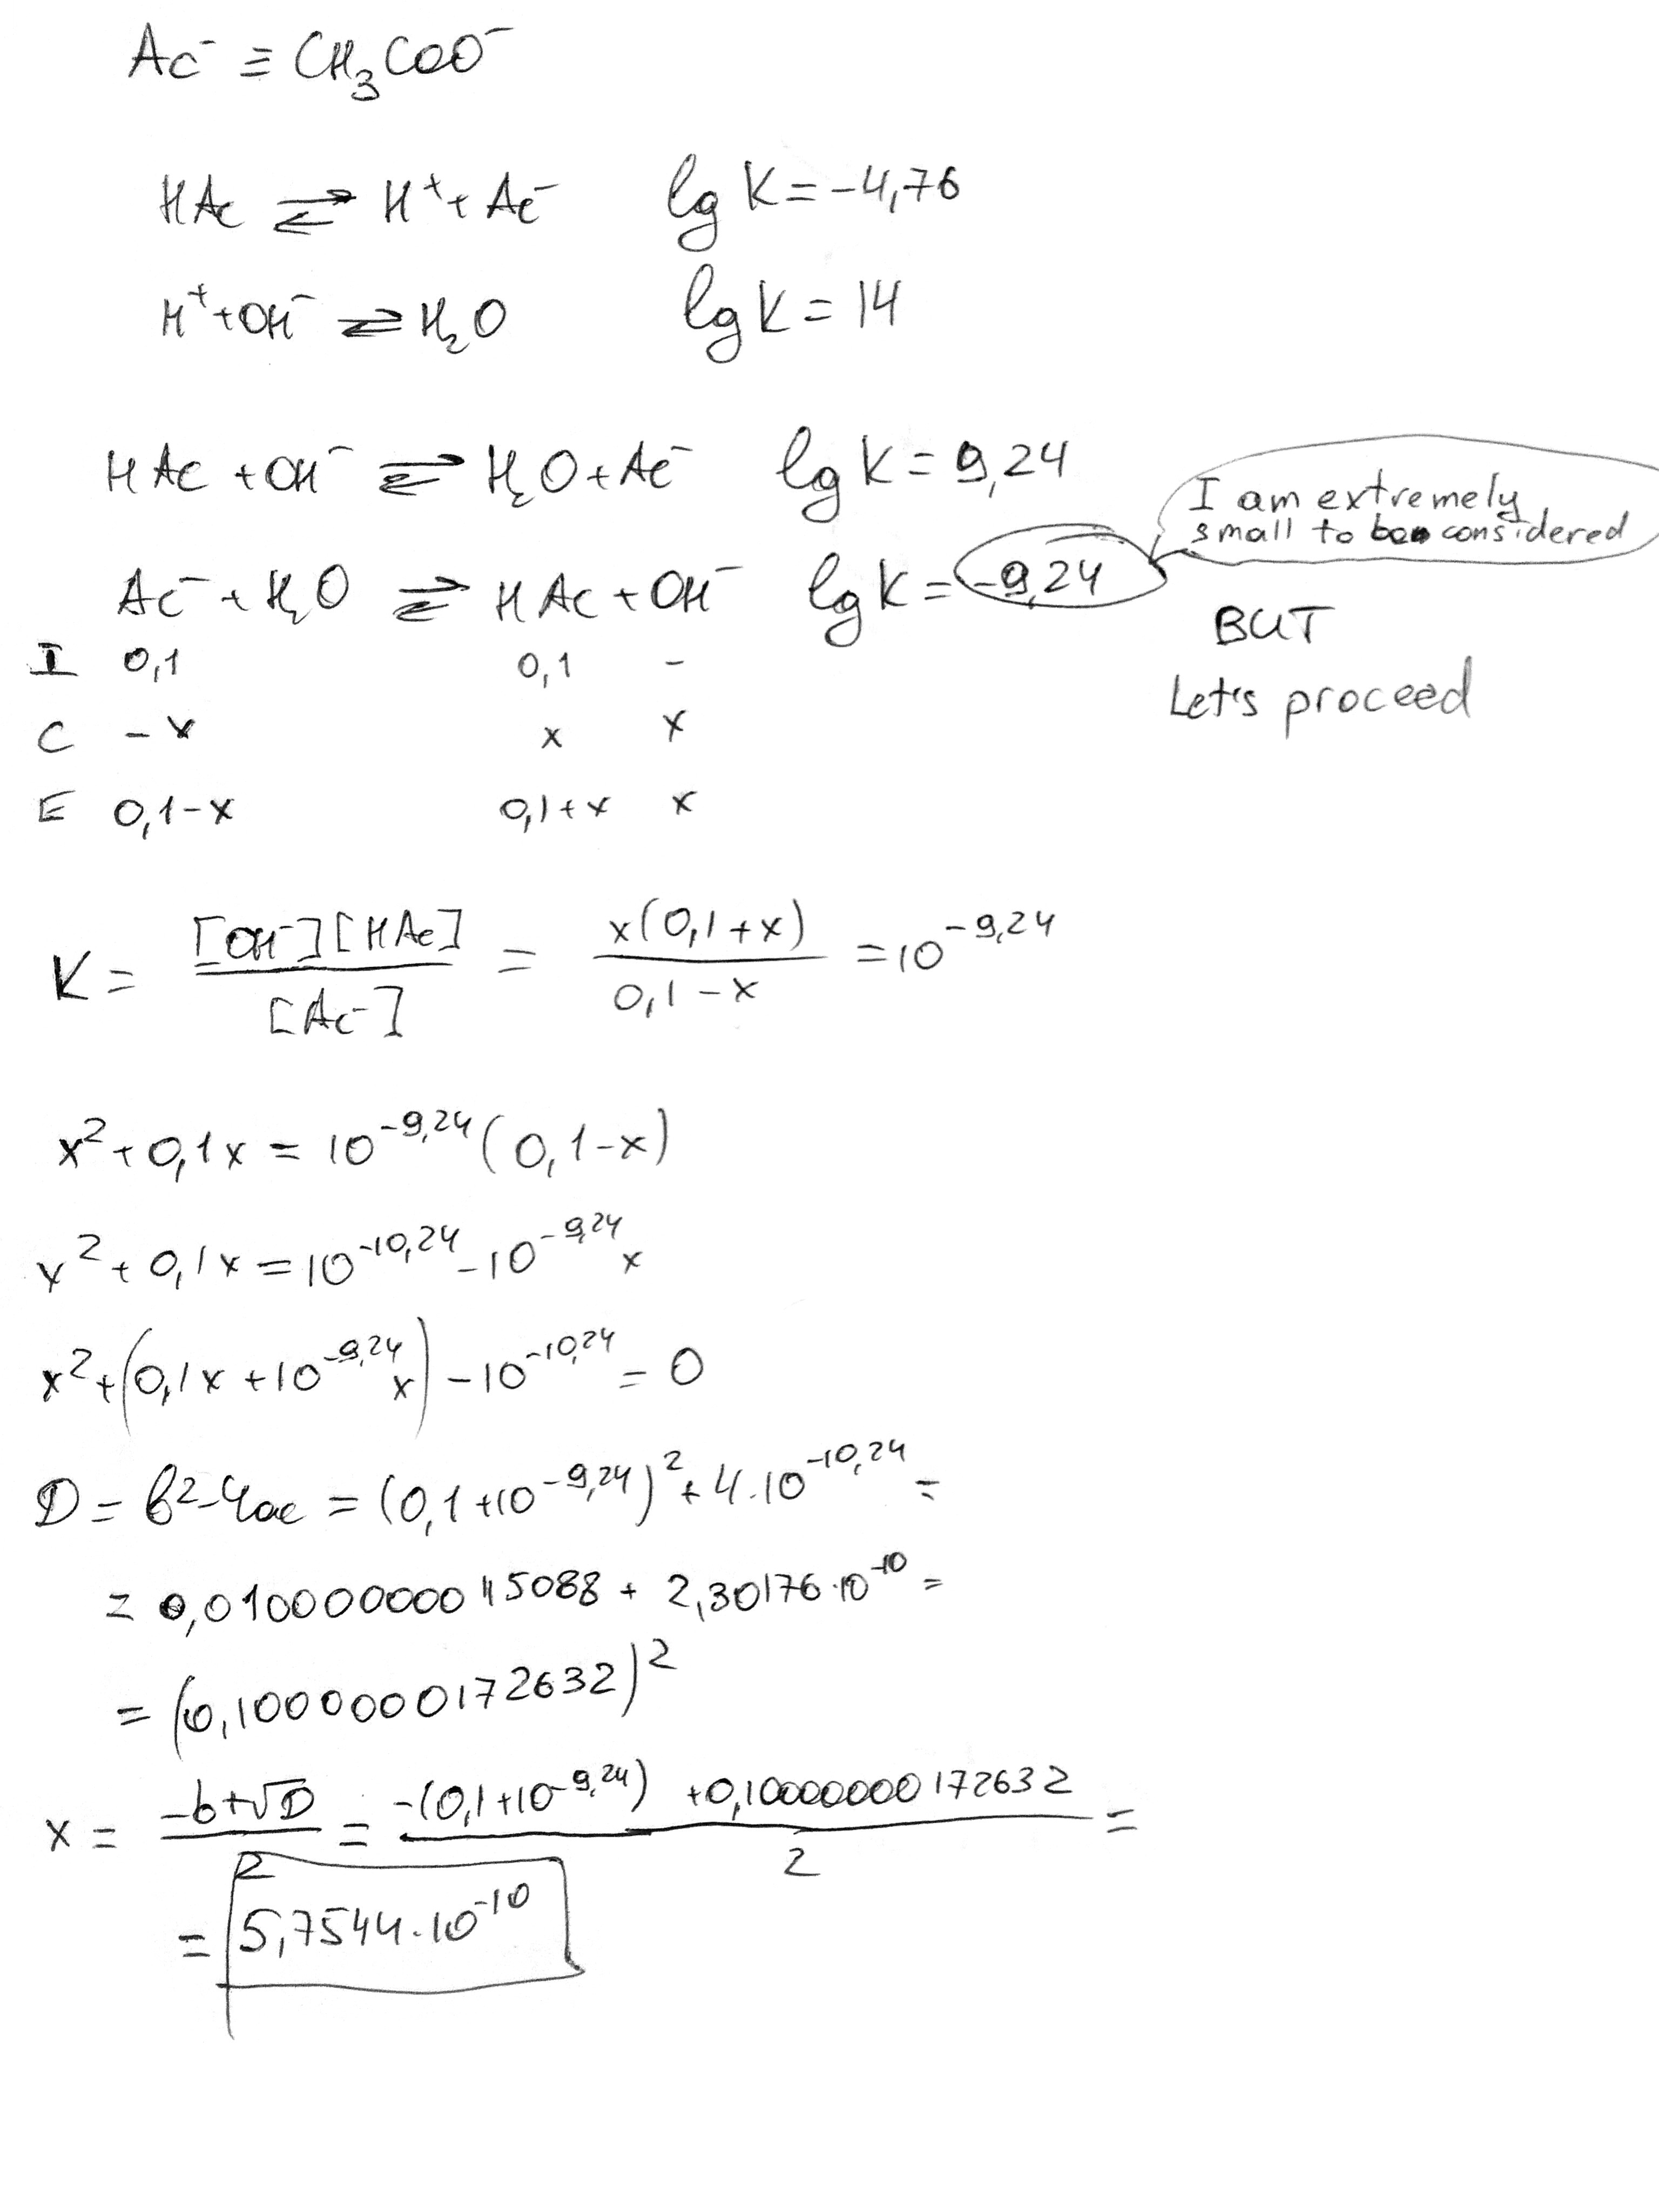 Ac⁻ ≡ CH₃COO⁻
HAc ⇌ H⁺ + Ac⁻ lg K = -4,76
H⁺ + OH⁻ ⇌ H₂O lg K = 14
HAc + OH⁻ ⇌ H₂O + Ac⁻ lg K = 9,24
I am extremely
small to be considered
Ac⁻ + H₂O ⇌ HAc + OH⁻ lg K = -9,24
BUT
Let's proceed
I 0,1 0,1 -
C -x x x
E 0,1-x 0,1+x x
K = [OH⁻][HAc] / [Ac⁻] = x(0,1+x) / 0,1-x = 10^-9,24
x² + 0,1x = 10^-9,24 (0,1-x)
x² + 0,1x = 10^-10,24 - 10^-9,24 x
x² + (0,1x + 10^-9,24 x) - 10^-10,24 = 0
D = b² - 4ac = (0,1 + 10^-9,24)² + 4·10^-10,24 =
= 0,0100000000115088 + 2,30176·10^-10 =
= (0,10000000172632)²
x = -b+√D / 2 = -(0,1+10^-9,24) +0,10000000172632 / 2 =
= 5,7544·10^-10